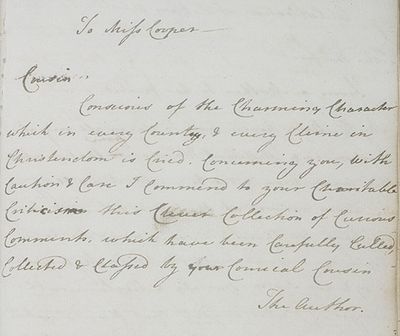 To Miss Cooper
Cousin
Conscious of the Charming Character
which in every Country, & every Clime in
Christendom is Cried, Concerning you, with
Caution & Care I Commend to your Charitable
Criticism this Clever Collection of Curious
Comments, which have been Carefully Culled,
Collected & Classed by your Comical Cousin
The Author.